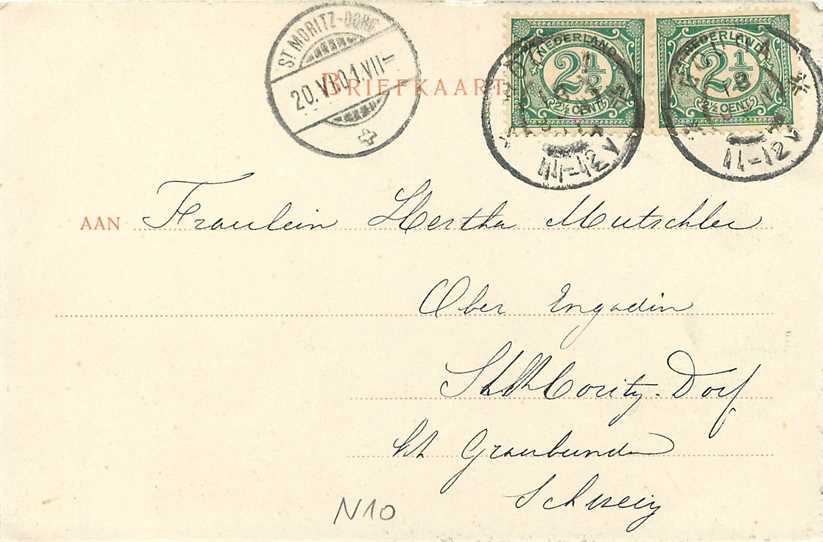 ST MORITZ-DORF
20.VI.01.VII
BRIEFKAART
NEDERLAND
2½
2½ CENT
NEDERLAND
2½
2½ CENT
11-12V
11-12V
AAN Fraulein Hertha Mutschler
Ober Engadin
St Moritz-Dorf
Kt Graubunden
Schweiz
N10